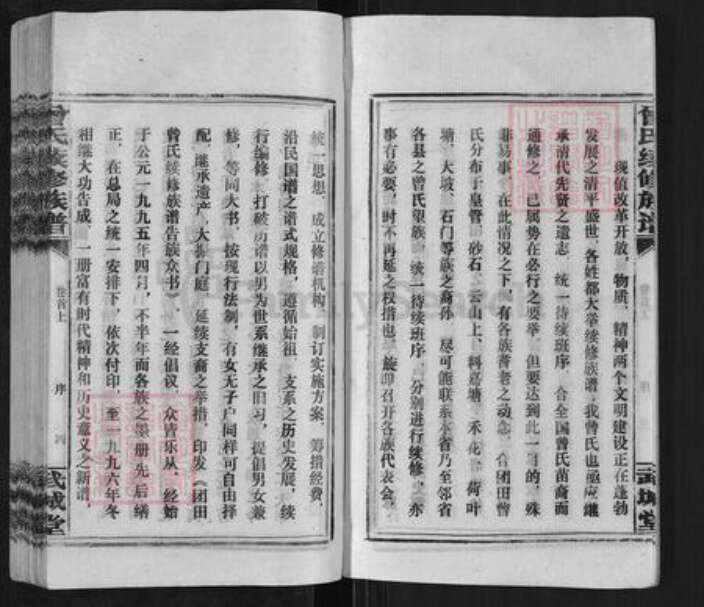 曾氏续修族谱
武城堂
现值改革开放，物质、精神两个文明建设正在蓬勃
发展之清平盛世，各姓都大举续修族谱，我曾氏也亟应继
承清代先贤之遗志，统一待续班序，合全国曾氏苗裔而
通修之，已属势在必行之要举，但要达到此一目的，殊
非易事。在此情况之下，有各族耆老之动念，合团田曾
氏分布于皇管、砂石、云山上、料嘉塘、禾花、荷叶
塘、大坡、石门等族之裔孙，尽可能联系本省乃至邻省
各县之曾氏望族，统一待续班序，分别进行续修，亦
事有必要，时不再延之权措也。旋即召开各族代表会，
统一思想，成立修谱机构，制订实施方案，筹措经费，
沿民国谱之谱式规格，遵循始祖、支系之历史发展，续
行编修。打破历谱以男为世系继承之旧习，提倡男女兼
修，等同大书，按现行法制，有女无子户同样可自由择
配，继承遗产，大振门庭，延续支裔之举措，印发《团田
曾氏续修族谱告族众书》，一经倡议，众皆乐从，经始
于公元一九九五年四月，不半年而各族之墨册先后缮
正，在总局之统一安排下，依次付印，至一九九六年冬
相继大功告成，一册富有时代精神和历史意义之新谱，
曾氏续修族谱
卷首上
序
四
武城堂